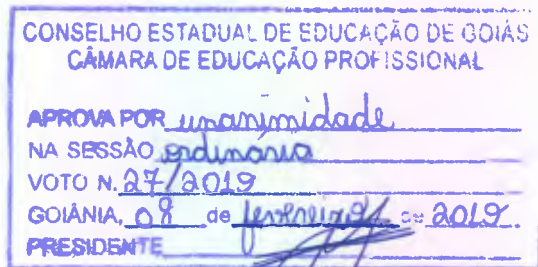 CONSELHO ESTADUAL DE EDUCAÇÃO DE GOIÁS
CÂMARA DE EDUCAÇÃO PROFISSIONAL
APROVA POR unanimidade
NA SESSÃO ordinária
VOTO N. 27/2019
GOIÂNIA, 08 de fevereiro de 2019.
PRESIDENTE